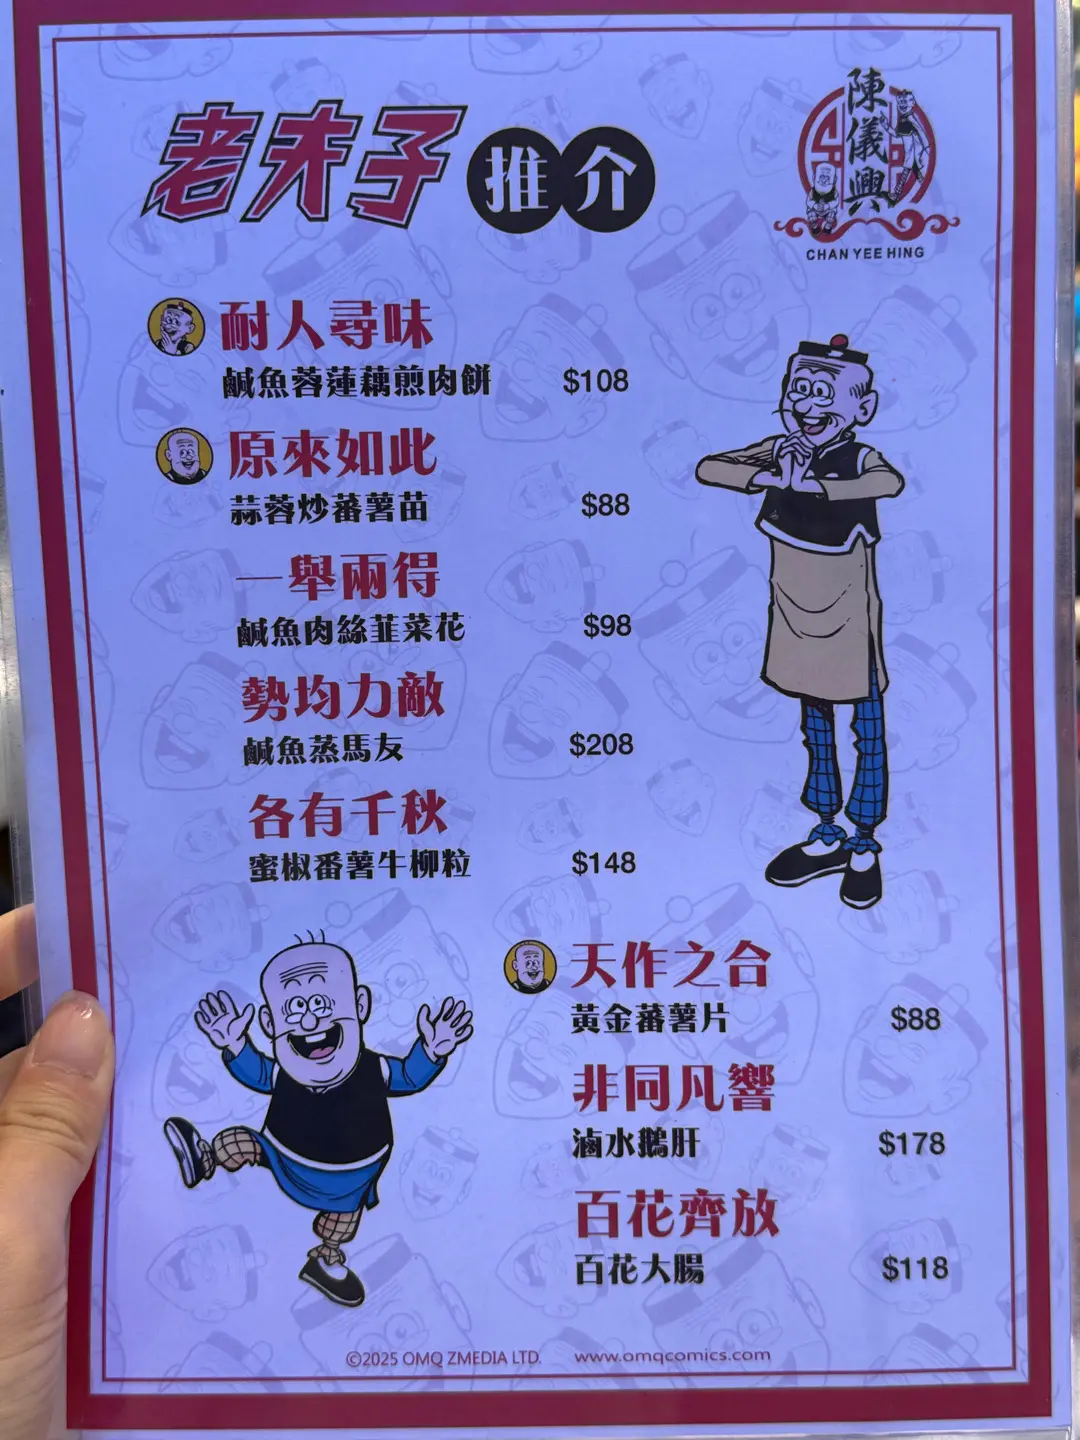 老夫子推介
陳儀興
CHAN YEE HING
耐人尋味
鹹魚蓉蓮藕煎肉餅 $108
原來如此
蒜蓉炒蕃薯苗 $88
一舉兩得
鹹魚肉絲韮菜花 $98
勢均力敵
鹹魚蒸馬友 $208
各有千秋
蜜椒番薯牛柳粒 $148
天作之合
黃金蕃薯片 $88
非同凡響
滷水鵝肝 $178
百花齊放
百花大腸 $118
©2025 OMQ ZMEDIA LTD. www.omqcomics.com